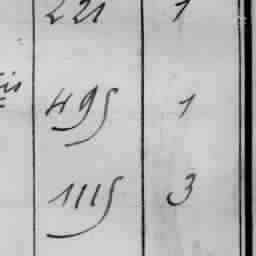 221 1
495 1
1115 3